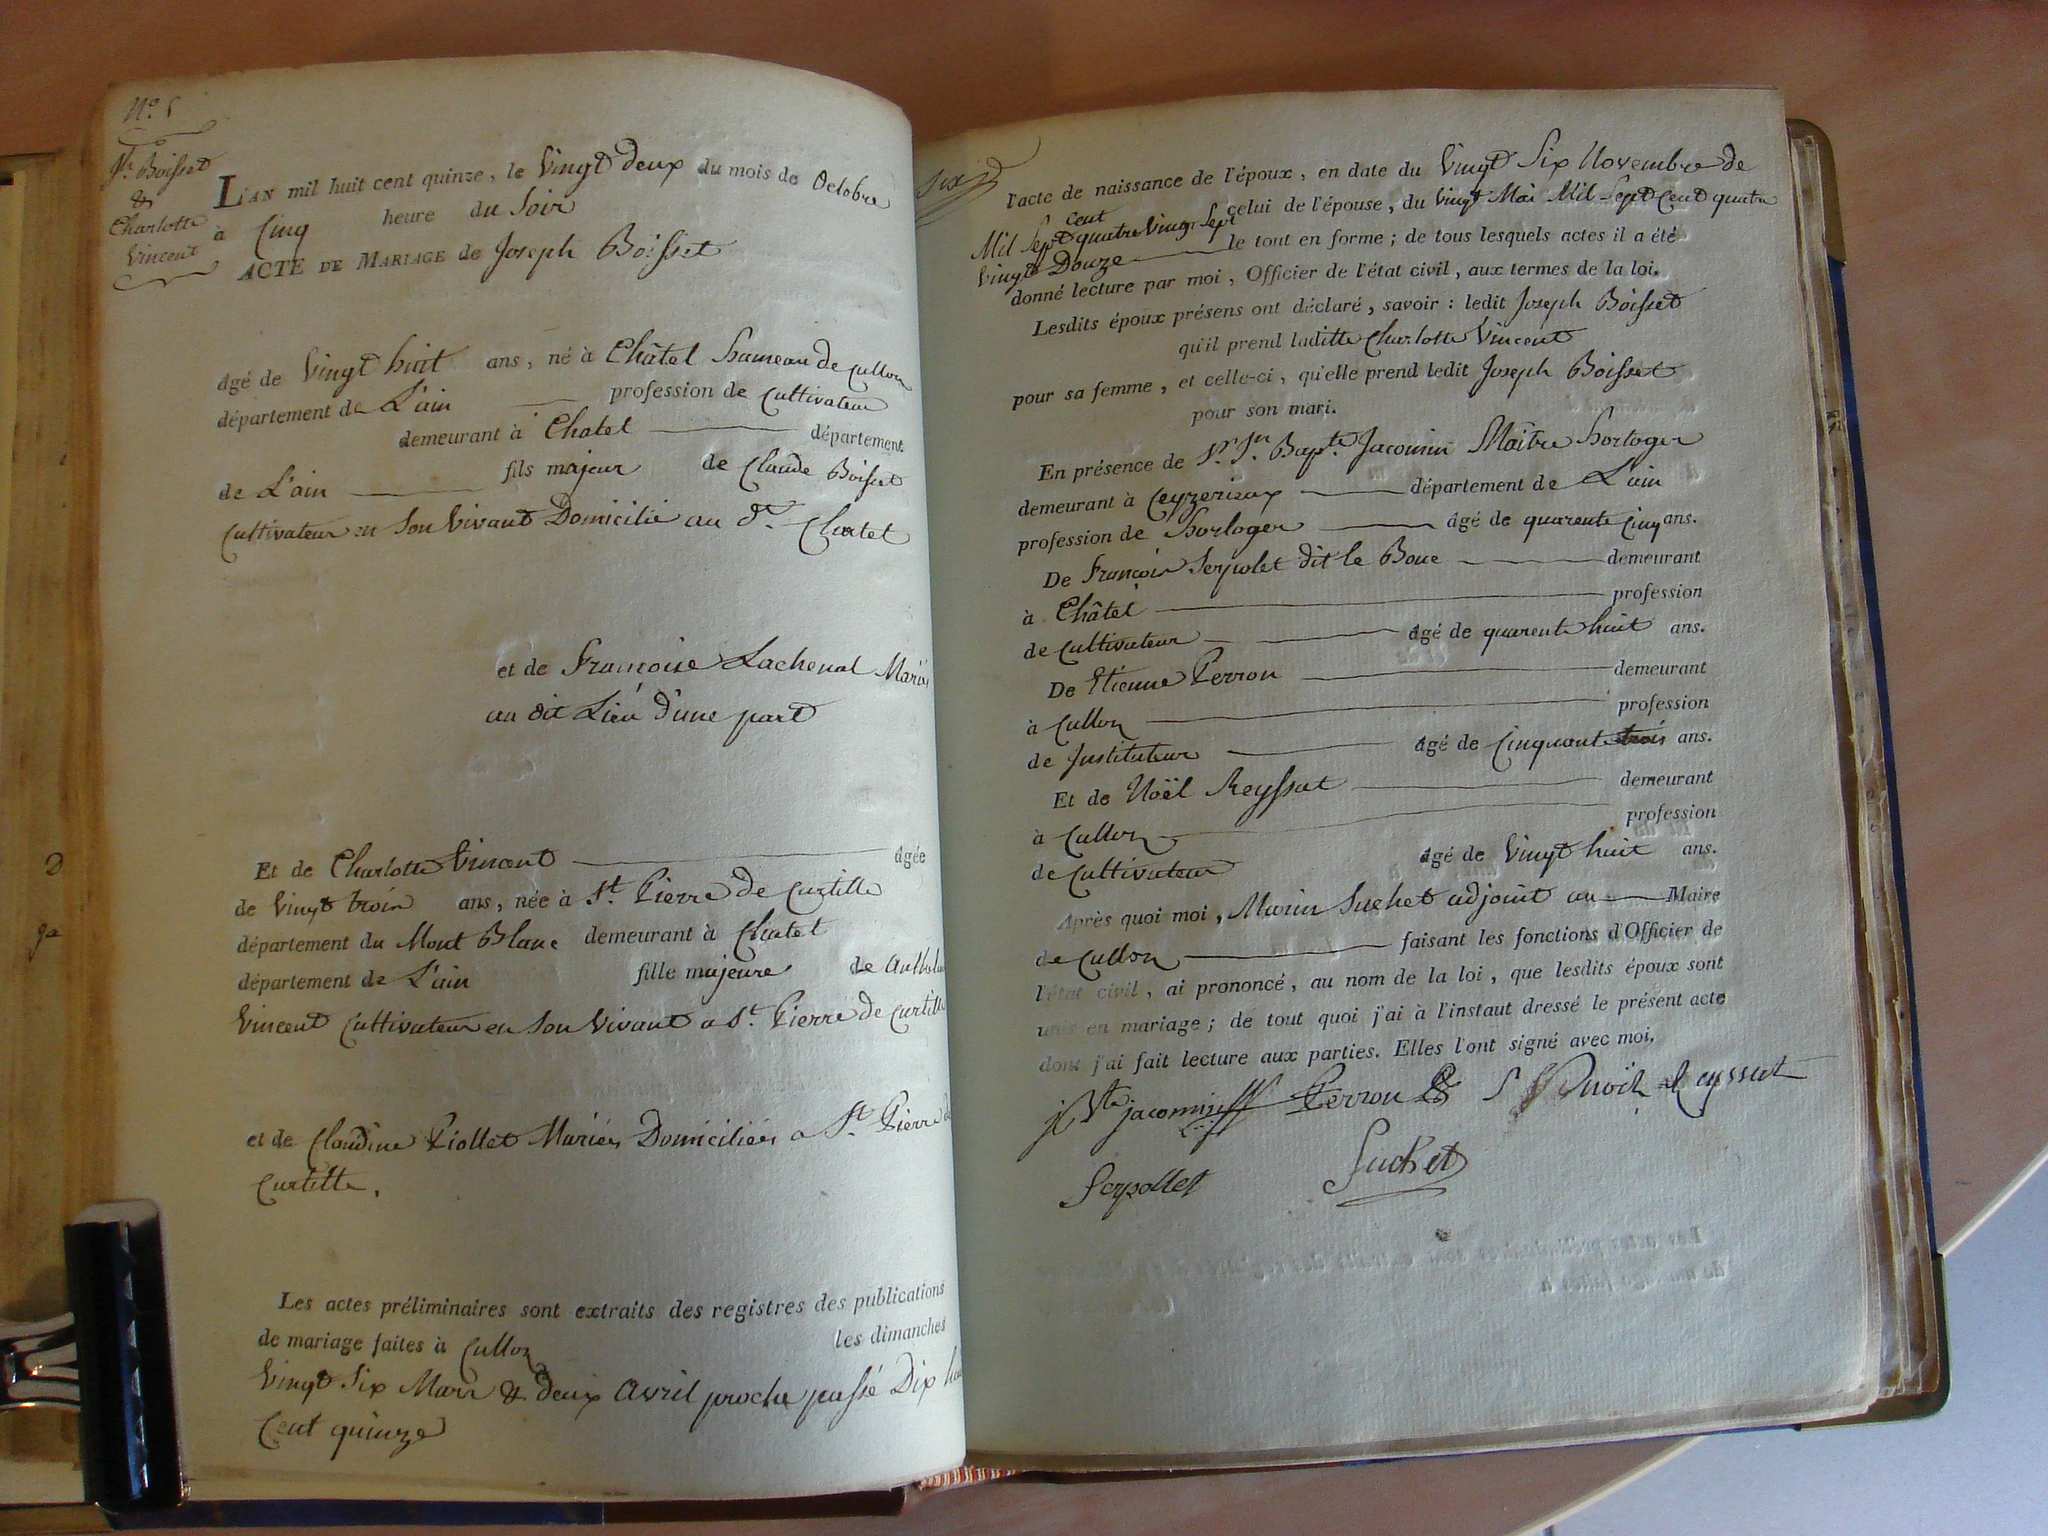 N.º 5
Jh. Boisset
&
Charlotte
Vincent
L'AN mil huit cent quinze, le Vingt deux du mois de Octobre
à Cinq heure du Soir
ACTE DE MARIAGE de Joseph Boisset
âgé de Vingt huit ans, né à Châtel hameau de Culloz
département de L'ain profession de Cultivateur
demeurant à Chatel département
de L'ain fils majeur de Claude Boisset
Cultivateur en Son Vivant Domicilié au d.t Chatel
et de Francoise Lachenal Mariés
au dit Lieu d'une part
Et de Charlotte Vincent âgée
de Vingt trois ans, née à St. Pierre de Curtille
département du Mont Blanc demeurant à Chatel
département de L'ain fille majeure de
Vincent Cultivateur en Son Vivant a St. Pierre de Curtille
et de Claudine Piollet Mariés Domiciliés a St. Pierre de
Curtille.
Les actes préliminaires sont extraits des registres des publications
de mariage faites à Culloz les dimanches
Vingt Six Mars & deux Avril proche passé Dix huit
Cent quinze
Six
l'acte de naissance de l'époux, en date du Vingt Six Novembre de
Mil Sept cent quatre Vingt Sept celui de l'épouse, du Vingt Mai Mil Sept Cent quatre
Vingt Douze le tout en forme; de tous lesquels actes il a été
donné lecture par moi, Officier de l'état civil, aux termes de la loi.
Lesdits époux présens ont déclaré, savoir: ledit Joseph Boisset
qu'il prend laditte Charlotte Vincent
pour sa femme, et celle-ci, qu'elle prend ledit Joseph Boisset
pour son mari.
En présence de Sr. Jn. Bapte. Jacomin Maître horloger
demeurant à Ceyzerieux département de L'ain
profession de horloger âgé de quarente Cinq ans.
De François Serpolet dit le Boue demeurant
à Châtel profession
de Cultivateur âgé de quarente huit ans.
De Etienne Perron demeurant
à Culloz profession
de Instituteur âgé de Cinquante trois ans.
Et de Noël Reyssat demeurant
à Culloz profession
de Cultivateur âgé de Vingt huit ans.
Après quoi moi, Marin Suchet adjoint au Maire
de Culloz faisant les fonctions d'Officier de
l'état civil, ai prononcé, au nom de la loi, que lesdits époux sont
unis en mariage; de tout quoi j'ai à l'instant dressé le présent acte
dont j'ai fait lecture aux parties. Elles l'ont signé avec moi.
jBte jacomin Perron Reyssat
Serpollet Suchet